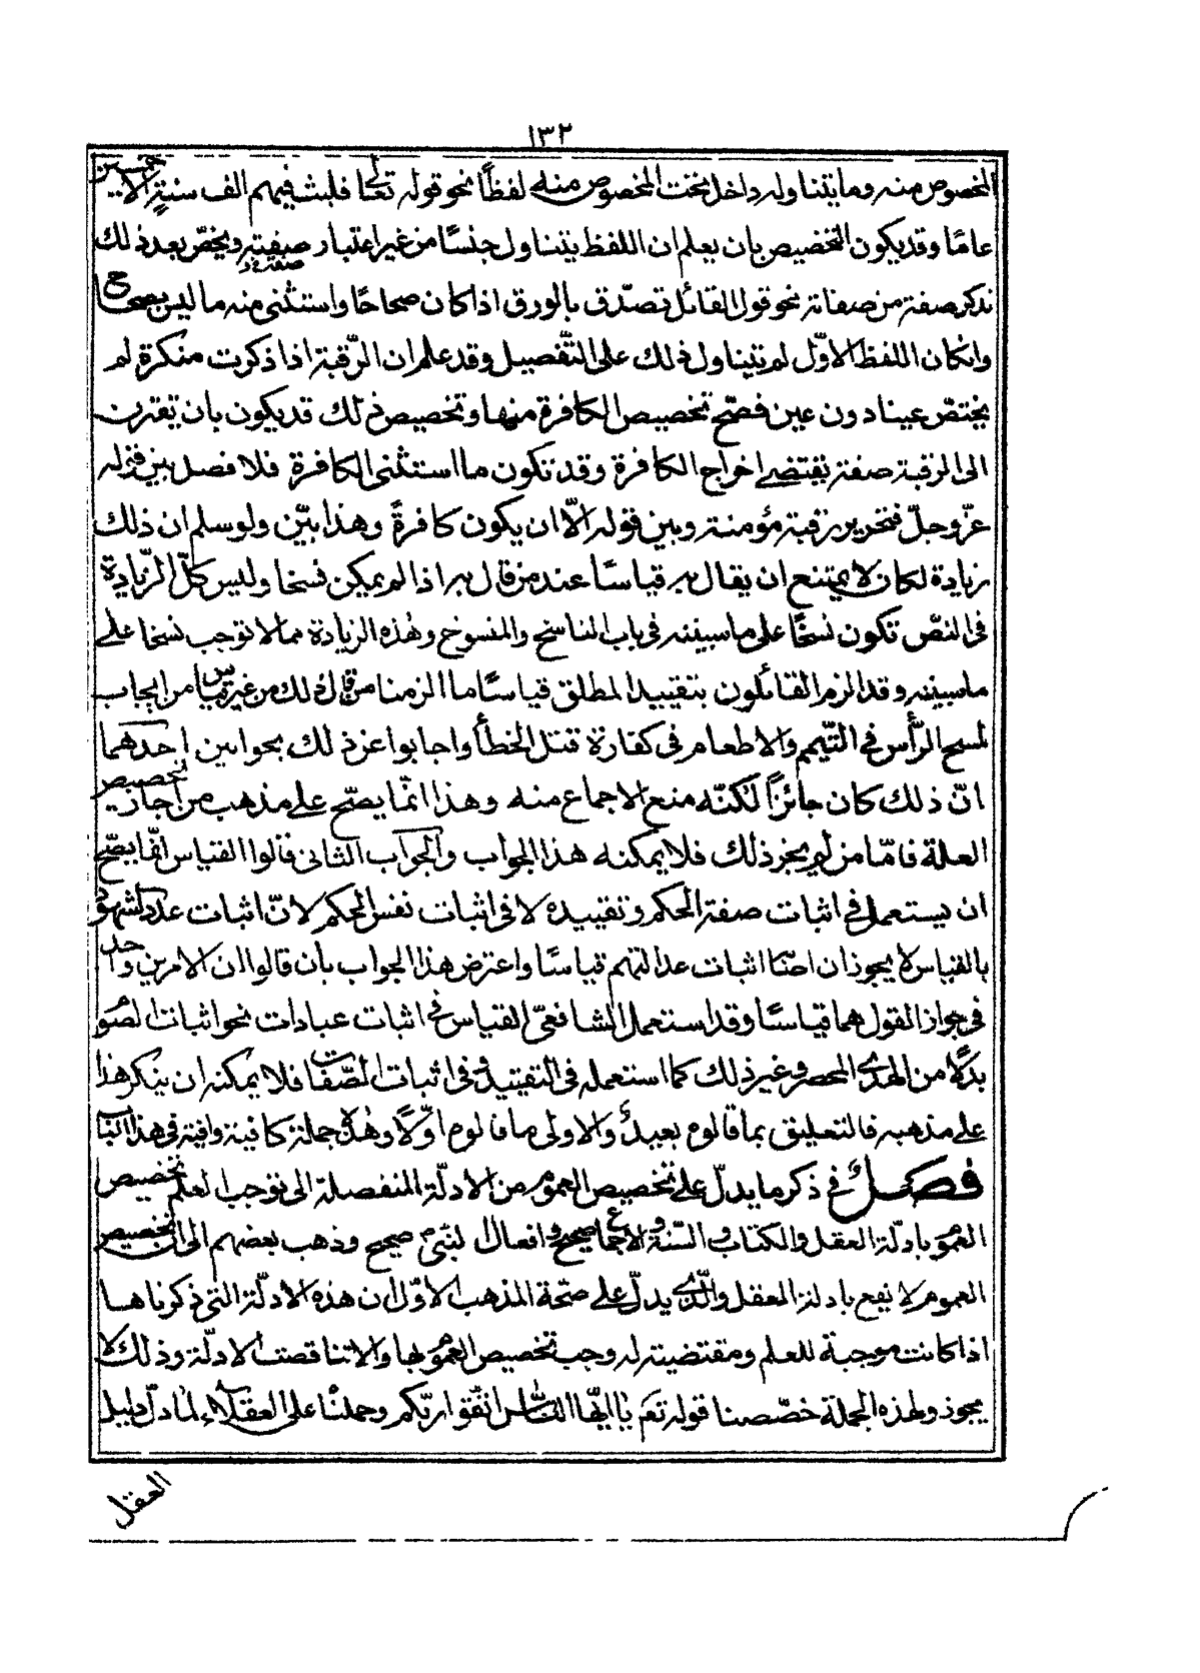 ١٣٢
المخصوص منه وما يتناوله داخل تحت المخصوص منه لفظًا نحو قوله تعالى فلبث فيهم الف سنةٍ الا خمسين
عامًا وقد يكون التخصيص بان يعلم ان اللفظ يتناول جنسًا من غير اعتبار صفته ويخصّ بعد ذلك
بذكر صفة من صفاته نحو قول القائل تصدّق بالورق اذا كان صحاحًا واستثنى منه ما ليس بصحاح
وانكان اللفظ الاوّل لم يتناول ذلك على التّفصيل وقد علم ان الرّقبة اذا ذكرت منكرة لم
يختصّ عينا دون عين فصّح تخصيص الكافرة منها وتخصيص ذلك قد يكون بان تقترن
الى الرقبة صفة يقتضى اخراج الكافرة وقد تكون ما استثنى الكافرة فلا فصل بين قوله
عزّ وجلّ فتحرير رقبة مؤمنة وبين قوله الّا ان يكون كافرةً وهذا بيّن ولو سلم ان ذلك
زيادة لكان لا يمتنع ان يقال به قياسًا عند من قال به اذا لم يمكن نسخا وليس كلّ الزّيادة
فى النصّ تكون نسخًا على ما سيبنه فى باب الناسخ والمنسوخ وهذه الزيادة مما لا توجب نسخا على
ما سيبينه وقد الزم القائلون بتقييد المطلق قياسًا ما الزمنا من قال ذلك من غير قياس من ايجاب
لمسح الرّأس فى التّيمم والاطعام فى كفارة قتل الخطأ واجابوا عن ذلك بجوابين احدهما
انّ ذلك كان جائزًا لكنّه منع الاجماع منه وهذا انّما يصحّ على مذهب من اجاز تخصيص
العلة فامّا من لم يجز ذلك فلا يمكنه هذا الجواب والجواب الثانى قالوا القياس انّما يصّح
ان يستعمل فى اثبات صفة الحكم وتقييده لا فى اثبات نفس الحكم لانّ اثبات عدد الشهود
بالقياس لا يجوز ان اصّا اثبات عدالتهم قياسًا واعترض هذا الجواب بان قالوا ان الامرين واحد
فى جواز القول هما قياسًا وقد استعمل الشافعىّ القياس فى اثبات عبادات نحو اثبات الصّوم
بدلًا من الهدى المحصر وغير ذلك كما استعمله فى التقييد وفى اثبات الصّفات فلا يمكنه ان ينكر هذا
على مذهبه فالتعليق بما قالوه بعيدٌ والاولى ما قالوه اوّلًا وهذه جملة كافية وافية فى هذا الباب
فصل فى ذكر ما يدلّ على تخصيص العموم من الادلّة المنفصلة الى توجب العلم تخصيص
العموم بادلّة العقل والكتاب والسّنة والاجماع صحيح وافعال النّبىّ صحيح وذهب بعضهم الى ان تخصيص
العموم لا يقع بادلة العقل والّذى يدلّ على صحّة المذهب الاوّل ان هذه الادلّة التى ذكرناها
اذا كانت موجبة للعلم ومقتضية له وجب تخصيص العموم بها والا تناقضت الادلّة وذلك لا
يجوز ولهذه الجملة خصّصنا قوله تعم يا ايّها النّاس اتّقوا ربّكم وحملنا على العقلاء لما دلّ دليل
العقل